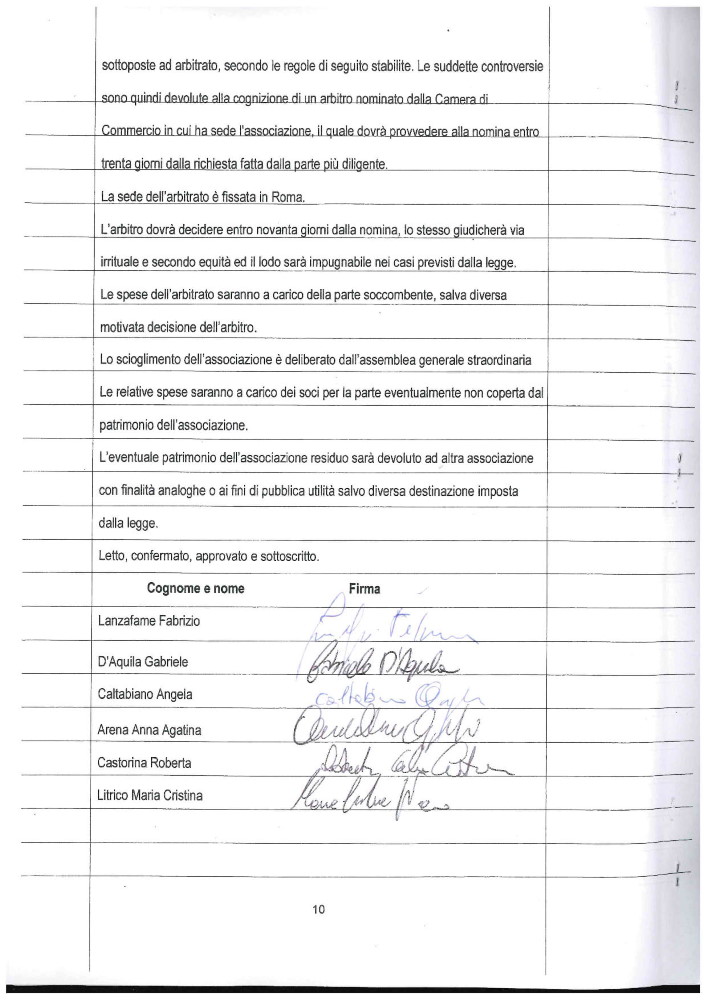 sottoposte ad arbitrato, secondo le regole di seguito stabilite. Le suddette controversie
sono quindi devolute alla cognizione di un arbitro nominato dalla Camera di
Commercio in cui ha sede l'associazione, il quale dovrà provvedere alla nomina entro
trenta giorni dalla richiesta fatta dalla parte più diligente.
La sede dell'arbitrato è fissata in Roma.
L'arbitro dovrà decidere entro novanta giorni dalla nomina, lo stesso giudicherà via
irrituale e secondo equità ed il lodo sarà impugnabile nei casi previsti dalla legge.
Le spese dell'arbitrato saranno a carico della parte soccombente, salva diversa
motivata decisione dell'arbitro.
Lo scioglimento dell'associazione è deliberato dall'assemblea generale straordinaria
Le relative spese saranno a carico dei soci per la parte eventualmente non coperta dal
patrimonio dell'associazione.
L'eventuale patrimonio dell'associazione residuo sarà devoluto ad altra associazione
con finalità analoghe o ai fini di pubblica utilità salvo diversa destinazione imposta
dalla legge.
Letto, confermato, approvato e sottoscritto.
Cognome e nome Firma
Lanzafame Fabrizio
D'Aquila Gabriele Gabriele D'Aquila
Caltabiano Angela
Arena Anna Agatina
Castorina Roberta
Litrico Maria Cristina
10